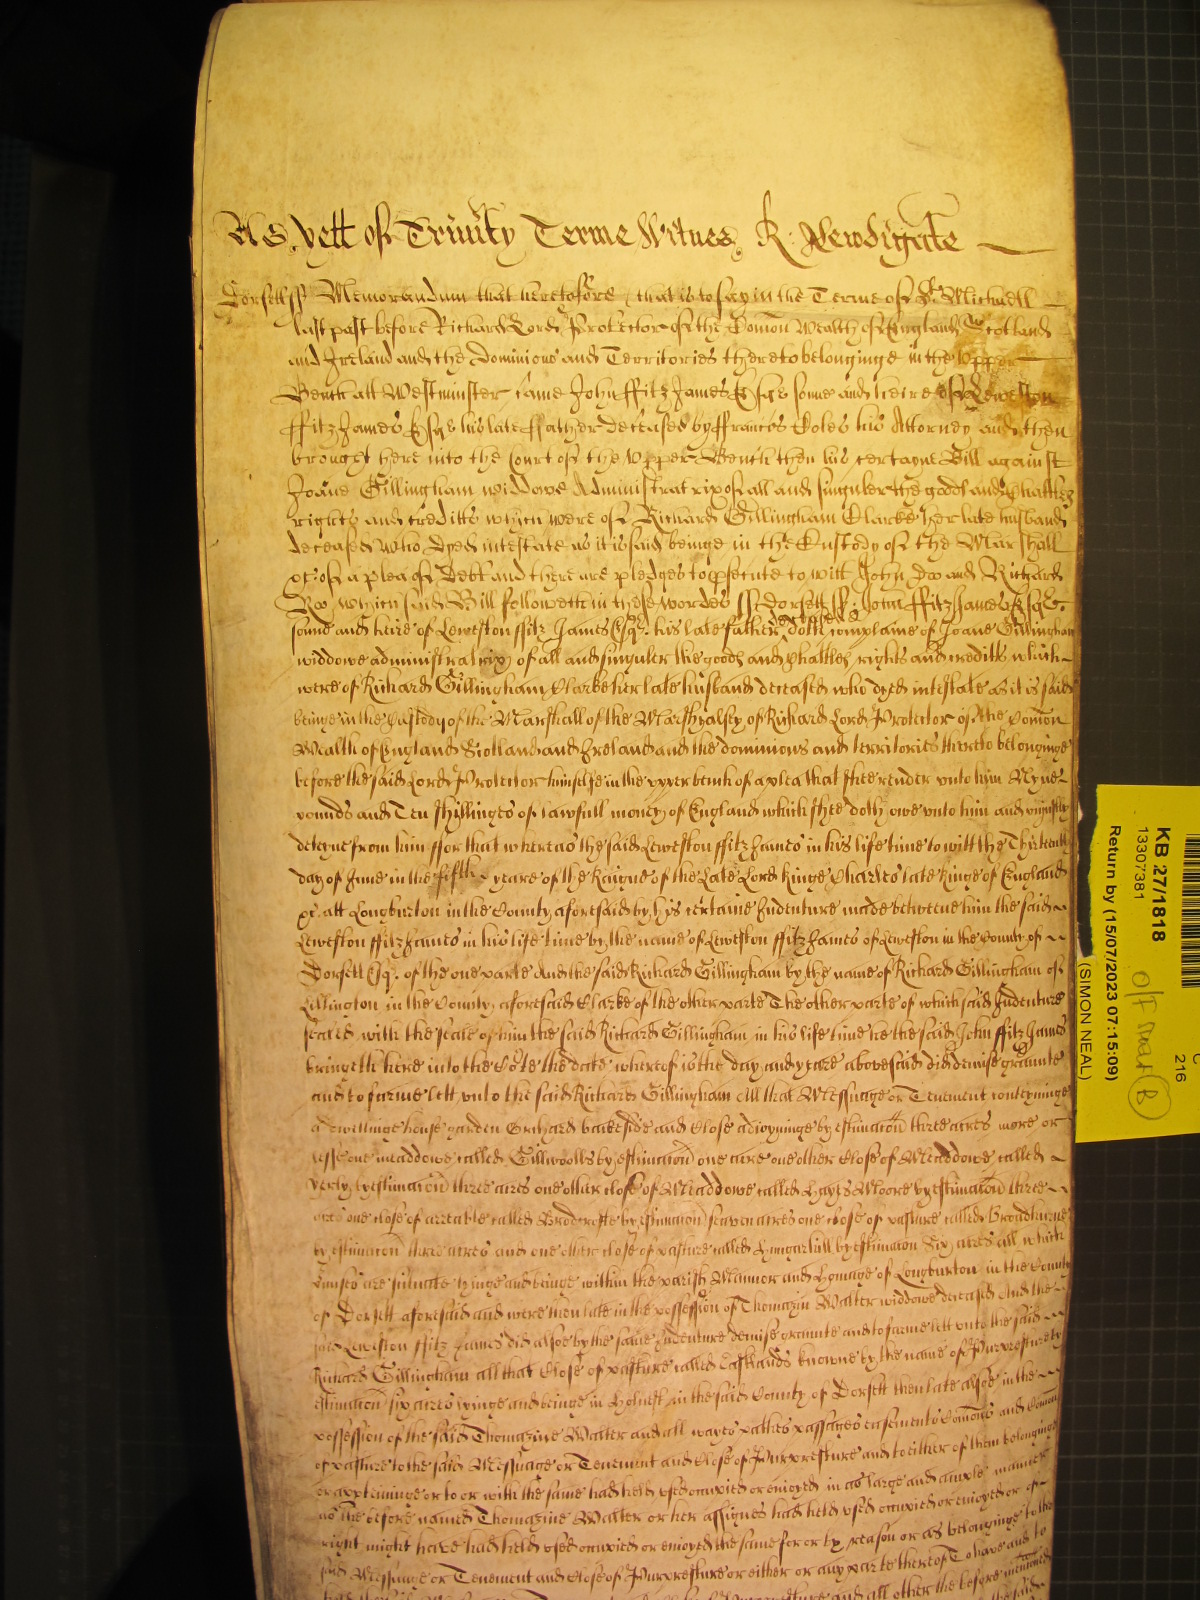 As yett of Trinity Terme Witnes R: Newdigate
Dorsett ss Memorandum that heretofore that is to say in the Terme of St. Michaell
last past before Richard Lord Protector of the Comon Wealth of England Scotland
and Ireland and the Dominions and Territories thereto belonginge in the Upper
Bench att Westminster came John ffitz James Esqr sonne and heire of Leweston
ffitz James Esqr his late ffather deceased by ffrancis Coles his Attorney and then
brought here into the Court of the Upper Bench then his certayne Bill against
Joane Gillingham widdowe Administratrix of all and singuler the goods and Chattles
rights and creditts which were of Richard Gillingham Clarke her late husband
deceased who dyed intestate as it is said beinge in the Custody of the Marshall
&c. of a plea of Debt and there are pledges to psecute to witt John Doe and Richard
Roe which said Bill followeth in these wordes ss Dorsett ss: John ffitz James Esqr.
sonne and heire of Leweston ffitz James Esqr. his late father deceased doth complaine of Joane Gillingham
widdowe administratrix of all and singuler the goods and Chattles rights and creditts which
were of Richard Gillingham Clarke her late husband deceased who dyed intestate as it is said
beinge in the Custody of the Marshall of the Marshalsey of Richard Lord Protector of the Comon
Wealth of England Scotland and Ireland and the dominions and territories thereto belonginge
before the said Lord Protector himselfe in the upper bench of a plea that shee render unto him Nyne
pounds and Ten shillings of lawfull money of England which shee doth owe unto him and uniustly
deteyne from him ffor that whereas the said Leweston ffitz James in his life time to witt the Thirteenth
day of June in the fifth yeare of the Raigne of the Late Lord Kinge Charles late Kinge of England
&c. att Longburton in the County aforesaid by his certaine Indenture made betweene him the said
Leweston ffitz James in his life time by the name of Leweston ffitz James of Leweston in the County of
Dorsett Esqr. of the one parte And the said Richard Gillingham by the name of Richard Gillingham of
Lillington in the County aforesaid Clarke of the other parte The other parte of which said Indenture
sealed with the seale of him the said Richard Gillingham in his life time he the said John ffitz James
bringeth here into the Co'te the date whereof is the day and yeare abovesaid did demise graunte
and to farme lett unto the said Richard Gillingham All that Messuage or Tenement conteyninge
a dwellinge house garden Orchard backside and Close adioyninge by estimacon three acres more or
lesse one meaddowe called Gillwoolls by estimacon one acre one other Close of Meaddowe called
by estimacon three acres one other close of Meaddowe called Hayes Moore by estimacon three
acres one close of arreable called Brodcrofte by estimacon seaven acres one close of pasture called
by estimacon three acres and one other close of pasture called Hungerhill by estimacon Six acres all which
p'misses are situate lyinge and beinge within the parish Mannor and of Longburton in the County
of Dorsett aforesaid and were then late in the possession of Thomazin Walter widdowe deceased And the
said Leweston ffitz James did alsoe by the same Indenture demise graunte and to farme lett unto the said
Richard Gillingham all that Close of pasture called Eastlands knowne by the name of Purpresture by
estimacon six acres lyinge and beinge in Holnest in the said County of Dorsett then late alsoe in the
possession of the said Thomazine Walter and all wayes pathes passages easements Comons and Comon
of pasture to the said Messuage or Tenement and Close of Purpresture and to either of them belonginge
or apperteininge or to or with the same had held used occupied or enioyed in as large and ample manner
as the before named Thomazine Walter or her assignes had held used occupied or enioyed or of
right might have had held used occupied or enioyed the same for or by reason or as belonginge to the
said Messuage or Tenement and Close of Purpresture or either or any parte thereof To have and to
and all other the before mentioned
KB 27/1818
13307381
Return by (15/07/2023 07:15:09)
(SIMON NEAL)
216